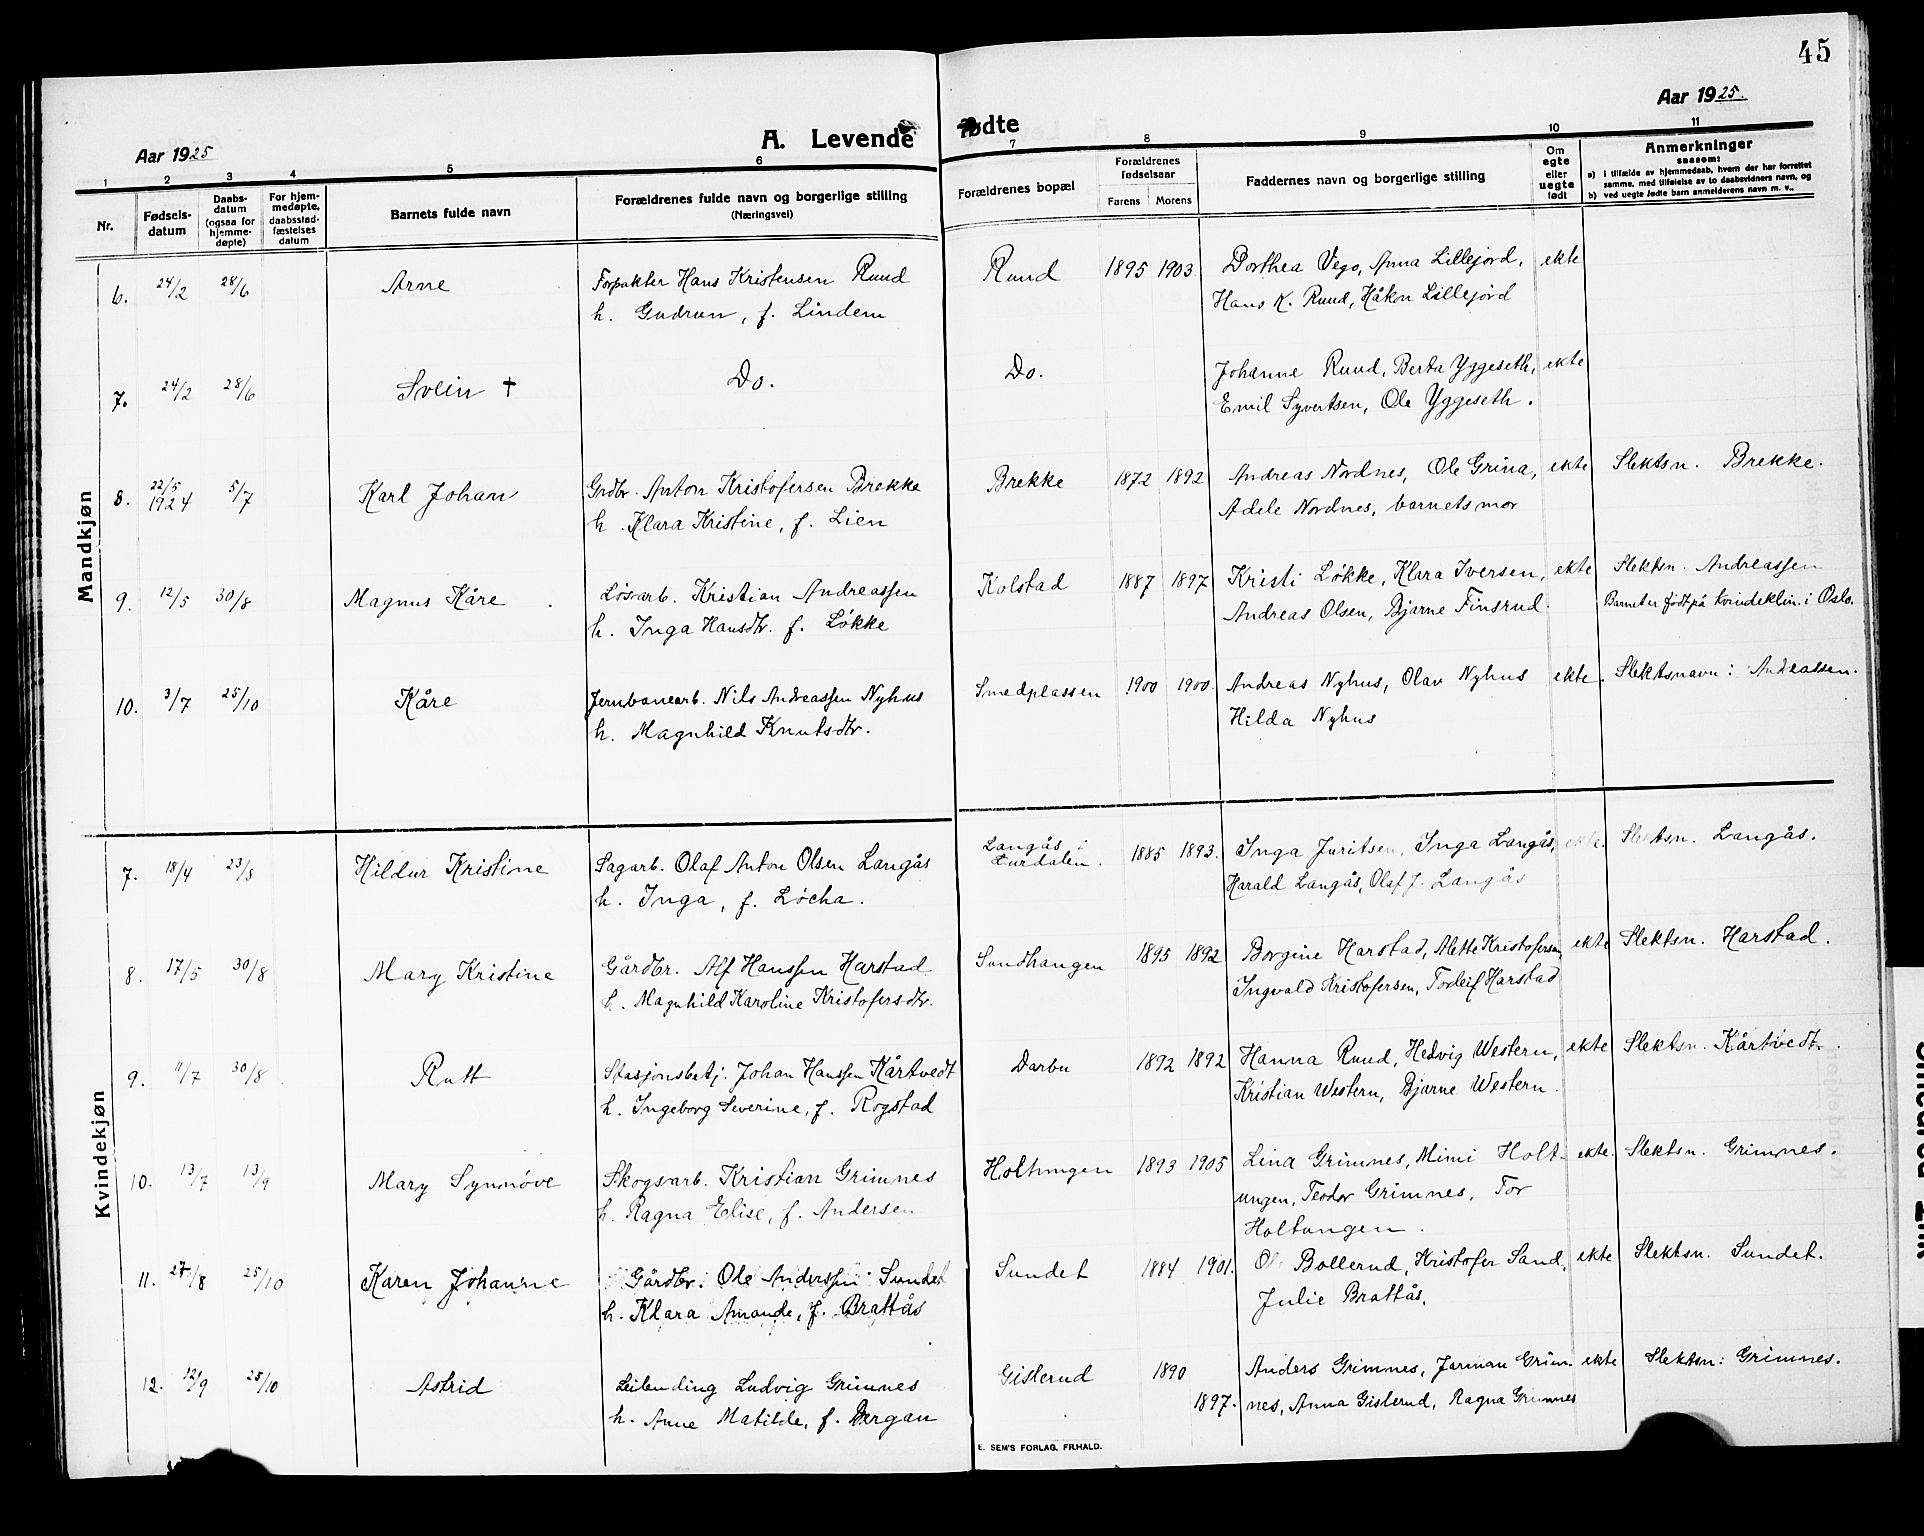 45
Aar 1925
A. Levende fødte
Aar 1925.
1 2 3 4 5 6 7 8 9 10 11
Nr.
Fødsels-
datum
Daabs-
datum
(ogsaa for
hjemme-
døpte)
For hjem-
medøpte,
daabsstad-
fæstelses
datum
Barnets fulde navn
Forældrenes fulde navn og borgerlige stilling
(Næringsvei)
Forældrenes bopæl
Forældrenes
fødselsaar
Farens Morens
Faddernes navn og borgerlige stilling
Om
egte
eller
uegte
født
Anmerkninger
saasom:
a) i tilfælde av hjemmedaab, hvem der har forrettet
samme, med tilføielse av to daabsvidners navn, og
b) ved uegte fødte barn anmelderens navn m. v..
Mandkjøn
6. 24/2 28/6 Arne Forpakter Hans Kristensen Ruud Ruud 1895 1903 Dorthea Vego, Anna Lillejord, ekte
h. Gudrun, f. Lindem Hans K. Ruud, Håkon Lillejord
7. 24/2 28/6 Svein † Do. Do. Johanne Ruud, Berta Yggeseth, ekte
Emil Syvertsen, Ole Yggeseth.
8. 22/5 1924 5/7 Karl Johan Grdbr. Anton Kristofersen Brekke Brekke 1872 1892 Andreas Nordnes, Ole Grina, ekte Slektsn. Brekke.
h. Klara Kristine, f. Lien Adele Nordnes, barnets mor
9. 12/5 30/8 Magnus Kåre Løsarb. Kristian Andreassen Kolstad 1887 1897 Kristi Løkke, Klara Iversen, ekte Slektsn. Andreassen
h. Inga Hansdtr. f. Løkke Andreas Olsen, Bjarne Finsrud. Barnet er født på Kvindeklin. i Oslo.
10. 3/7 25/10 Kåre Jernbanearb. Nils Andreassen Nyhus Smedplassen 1900 1900. Andreas Nyhus, Olav Nyhus ekte. Slektsnavn: Andreassen.
h. Magnhild Knutsdtr. Hilda Nyhus
Kvindekjøn
7. 18/4 23/8 Hildur Kristine Sagarb. Olaf Anton Olsen Langås Langås i Lurdalen. 1885 1893. Inga Juritsen, Inga Langås, ekte. Slektsn. Langås.
h. Inga, f. Løcha. Harald Langås, Olaf J. Langås
8. 17/5 30/8 Mary Kristine Gårdbr. Alf Hanssen Harstad Sundhangen 1895 1892 Borgine Harstad, Alette Kristofersen, ekte Slektsn. Harstad.
h. Magnhild Karoline Kristofersdtr. Ingvald Kristofersen, Torleif Harstad
9. 11/7 30/8 Rutt Stasjonsbetj. Johan Hanssen Kårtvedt Darbu 1892 1892 Hanna Ruud, Hedvig Western, ekte Slektsn. Kårtvedt.
h. Ingeborg Severine, f. Rogstad Kristian Western, Bjarne Western.
10. 13/7 13/9 Mary Synnøve Skogsarb. Kristian Grimnes Holtungen 1893 1905 Lina Grimnes, Mimi Holt- ekte. Slektsn. Grimnes.
h. Ragna Elise, f. Andersen ungen, Teodor Grimnes, Tor
Holtungen.
11. 27/8 25/10 Karen Johanne Gårdbr. Ole Anderssen Sundet Sundet 1884 1901. Ole Bollerud, Kristofer Sand, ekte Slektsn. Sundet.
h. Klara Amande, f. Brattås Julie Brattås.
12. 12/9 25/10 Astrid Leilending Ludvig Grimnes Gislerud 1890 Anders Grimnes, Jorman Grim- ekte Slektsn: Grimnes.
h. Anne Matilde, f. Bergan 1897. nes, Anna Gislerud, Ragna Grimnes
E. SEM'S FORLAG, FR.HALD.